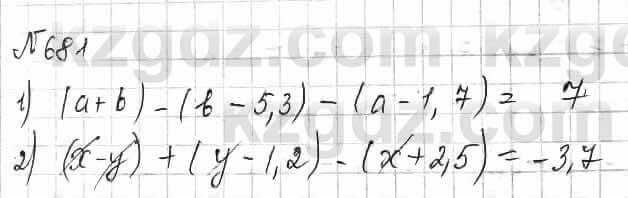 №681
kzgdz.com
1) (a+b) - (b - 5,3) - (a - 1,7) = 7
kzgdz.com
2) (x-y) + (y - 1,2) - (x + 2,5) = -3,7